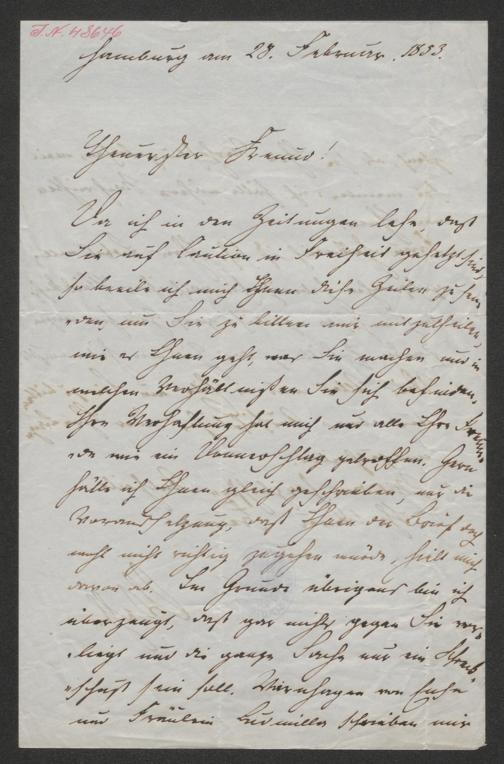 I.N. 48646
Hamburg am 28. Februar. 1853.
Theuerster Freund!
Da ich in den Zeitungen lese, daß
Sie auf Caution in Freiheit gesetzt sind,
so beeile ich mich Ihnen diese Zeilen zu sen-
-den, um Sie zu bitten mir mitzutheilen,
wie es Ihnen geht, was Sie machen und in
welchen Verhältnißen Sie sich befinden.
Ihre Verhaftung hat mich und alle Ihre Freun-
-de wie ein Donnerschlag getroffen. Gern
hätte ich Ihnen gleich geschrieben, nur die
Voraussetzung, daß Ihnen der Brief doch
wohl nicht richtig zugehen würde, hielt mich
davon ab. Im Grunde übrigens bin ich
überzeugt, daß gar nichts gegen Sie vor-
-liegt und die ganze Sache nur ein
-schuß sein soll. Varnhagen von Ense
und Fräulein Ludmilla schrieben mir